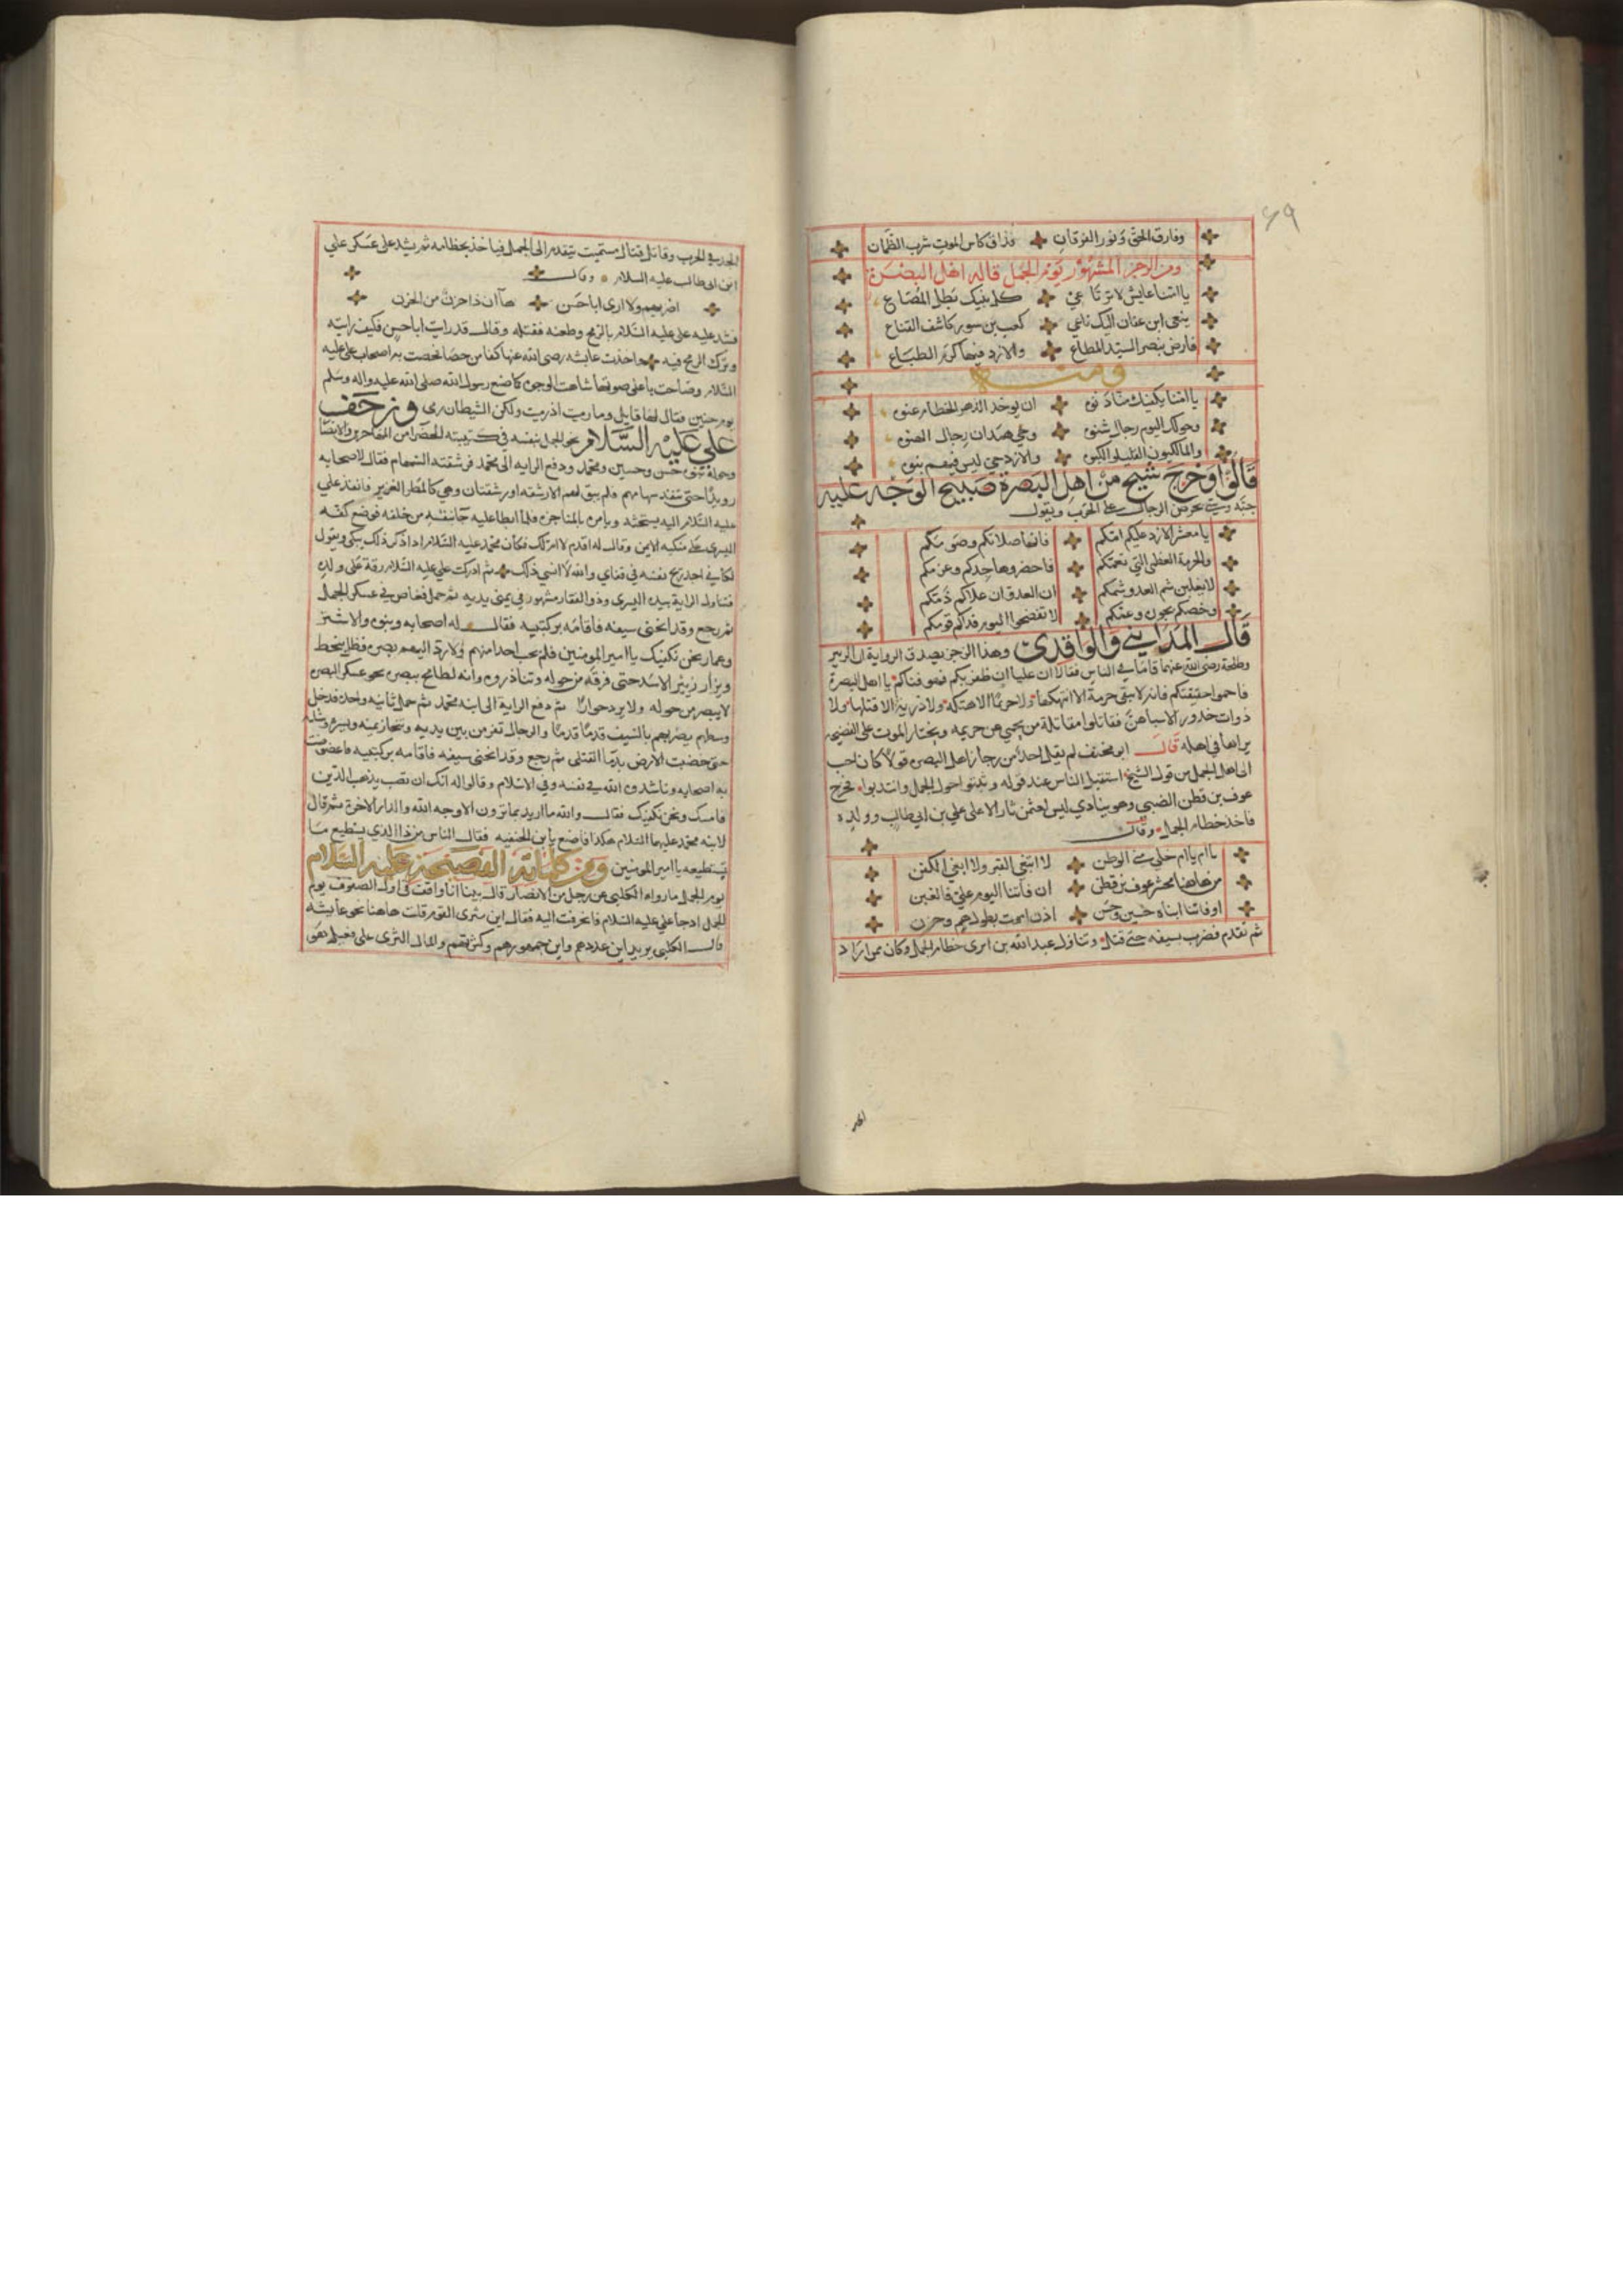 ٦٩
وفارق الحق ونور الفرقان فذاق كاس الموت شرب الظمان
ومن الرجز المشهور يوم الجمل قاله اهل البصرة
يا امنا عايش لا تراعي كل بنيك بطل المصاع
ينعى ابن عفان اليك ناعي كعب بن سور كاشف القناع
فارض بنصر السيد المطاع والازد فيها كرم الطباع
ومنه
يا امنا يكفيك منا دنوه ان يوخذ الدهر الخطام عنوه
وحولك اليوم رجال شنوه وحي همدان رجال الهبوه
والمالكيون القليلو الكبوه والازد حي ليس فيهم نبوه
قالوا وخرج شيخ من اهل البصرة صبيح الوجه عليه
جبة وشي يحرض الرجال على الحرب ويقول
يا معشر الازد عليكم امكم فانها صلاتكم وصومكم
والحرمة العظمى التي تعمكم فاحضروها جدكم وعزمكم
لا يغلبن سم العدو سمكم ان العدو ان علاكم ذمكم
وخصكم بجوره وعمكم لا تفضحوا اليوم فداكم قومكم
قال المدايني والواقدي وهذا الرجز يصدق الرواية ان الزبير
وطلحة رضي الله عنهما قاما في الناس فقالا ان عليا ان يظفر بكم فهو فناكم يا اهل البصرة
فاحموا حقيقتكم فانه لا يبقي حرمة الا انتهكها ولا حريما الا هتكه ولا ذرية الا قتلها ولا
ذوات خدور الا سباهن فقاتلوا مقاتلة من يحمي عن حريمه ويختار الموت على الفضيحة
يراها في اهله قال ابو مخنف لم يقل احد من رجاز اهل البصرة قولا كان احب
الى اهل الجمل من قول الشيخ استقتل الناس عند قوله وثبتوا حول الجمل وانتدبوا فخرج
عوف بن قطن الضبي وهو ينادي ليس لعثمن ثار الا على علي بن ابي طالب وولده
فاخذ خطام الجمل وقال
يا ام يا ام خلى مني الوطن لا ابتغي القبر ولا ابغي الكفن
من هاهنا محشر عوف بن قطن ان فاتنا اليوم علي فالغبن
او فاتنا ابناه حسين وحسن اذن امت بطول هم وحزن
ثم تقدم فضرب بسيفه حتى قتل وتناول عبد الله بن ابزى خطام الجمل وكان من اراد
الجد في الحرب وقاتل قتال مستميت يتقدم الى الجمل فياخذ بخطامه ثم يشد على عسكر علي
ابن ابي طالب عليه السلام وقال
اضربهم ولا ارى ابا حسن ها ان ذا حزن من الحزن
فشد عليه علي عليه السلام بالرمح وطعنه فقتله وقال قد رايت ابا حسن فكيف رايته
وترك الرمح فيه واخذت عايشه رضي الله عنها كفا من حصا فحصبت به اصحاب علي عليه
السلام وصاحت باعلى صوتها شاهت الوجوه كما صنع رسول الله صلى الله عليه واله وسلم
يوم حنين فقال لها قايل وما رميت اذ رميت ولكن الشيطان رمى وزحف
علي عليه السلام نحو الجمل بنفسه في كتيبته الخضرا من المهاجرين والانصار
وحوله بنوه حسن وحسين ومحمد ودفع الرايه الى محمد فرشقته السهام فقال لاصحابه
رويدا حتى تنفد سهامهم فلم يبق لهم الا رشقه او رشقتان وهي كالمطر الغزير فانفذ علي
عليه السلام اليه يستحثه ويامره بالمناجزه فلما ابطا عليه جا بنفسه من خلفه فوضع كفه
اليسرى على منكبه الايمن وقال له اقدم لا ام لك فكان محمد عليه السلام اذا ذكر ذلك بكى ويقول
لكاني اجد ريح نفسه في قفاي والله لا انسى ذلك ثم ادركت علي عليه السلام رقة على ولده
فتناول الراية بيده اليسرى وذو الفقار مشهور في يمنى يديه ثم حمل فغاص في عسكر الجمل
ثم رجع وقد انحنى سيفه فاقامه بركبتيه فقال له اصحابه وبنوه والاشتر
وعمار نحن نكفيك يا امير المومنين فلم يجب احدا منهم ولا رد اليهم بصره فظل ينحط
ويزار زيير الاسد حتى فرق من حوله وتناذروه وانه لطامح ببصره نحو عسكر البصره
لا يبصر من حوله ولا يرد حوارا ثم دفع الراية الى ابنه محمد ثم حمل ثانيه وحده فدخل
وسطهم يضربهم بالسيف قدما قدما والرجال تفر من بين يديه وتنحاز يمنه ويسره
حتى خضبت الارض بدما القتلى ثم رجع وقد انحنى سيفه فاقامه بركبتيه فاعصوصب
به اصحابه وناشدوه الله في نفسه وفي الاسلام وقالوا له انك ان تصب يذهب الدين
فامسك ونحن نكفيك فقال والله ما اريد بما ترون الا وجه الله والدار الاخرة ثم قال
لابنه محمد عليهما السلام هكذا فاصنع يا بن الحنفيه فقال الناس من ذا الذي يستطيع ما
تستطيعه يا امير المومنين ومن كلماته الفصيحة عليه السلام
يوم الجمل ما رواه الكلبي عن رجل من الانصار قال بينا انا واقف في اول الصفوف يوم
الجمل اذ جا علي عليه السلام فانحرفت اليه فقال اين سرى القوم قلت هاهنا نحو عايشه
قال الكلبي يريد اين عددهم واين جمهورهم وكثرتهم والمال الثرى على فعيل هو